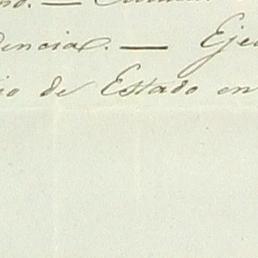 no. —
dencial. — Eje
io de Estado en